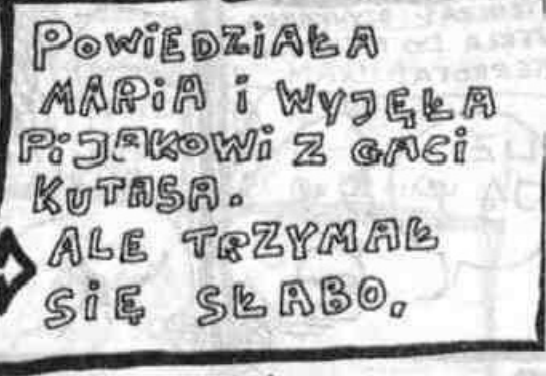 POWiEDZiAŁA
MARiA i WYJĘŁA
PiJAKOWi Z GACi
KUTASA.
ALE TRZYMAŁ
SiĘ SŁABO.